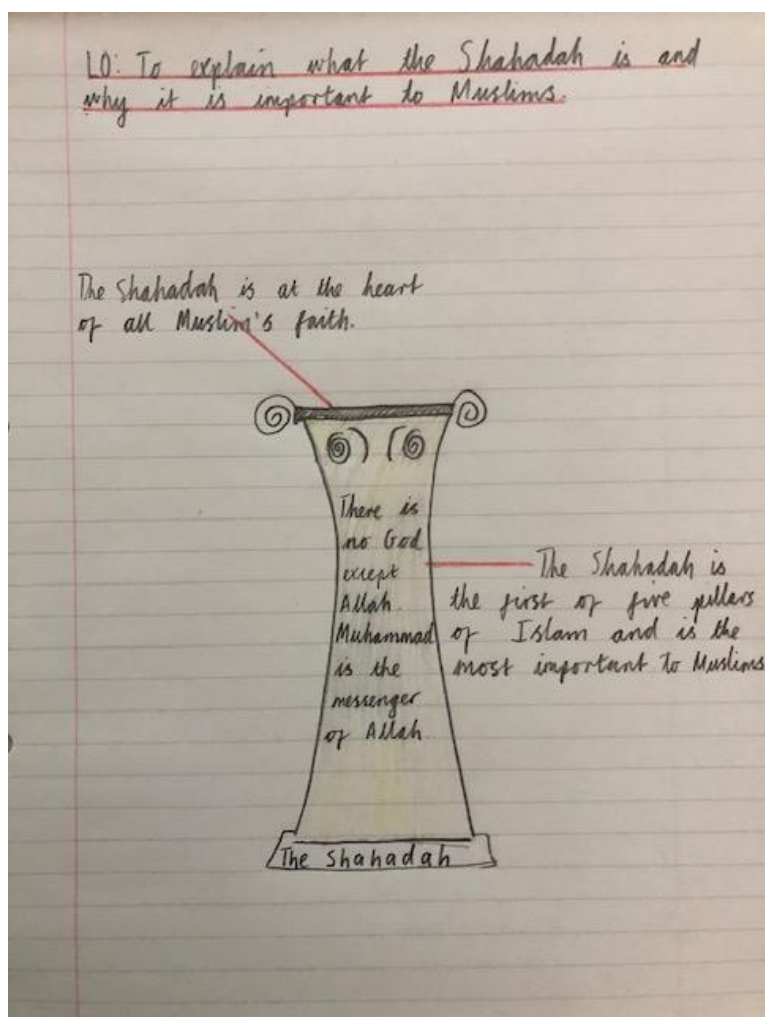 LO: To explain what the Shahadah is and
why it is important to Muslims.
The Shahadah is at the heart
of all Muslim's faith.
There is
no God
except
Allah.
Muhammad
is the
messenger
of Allah.
The Shahadah is
the first of five pillars
of Islam and is the
most important to Muslims
The Shahadah